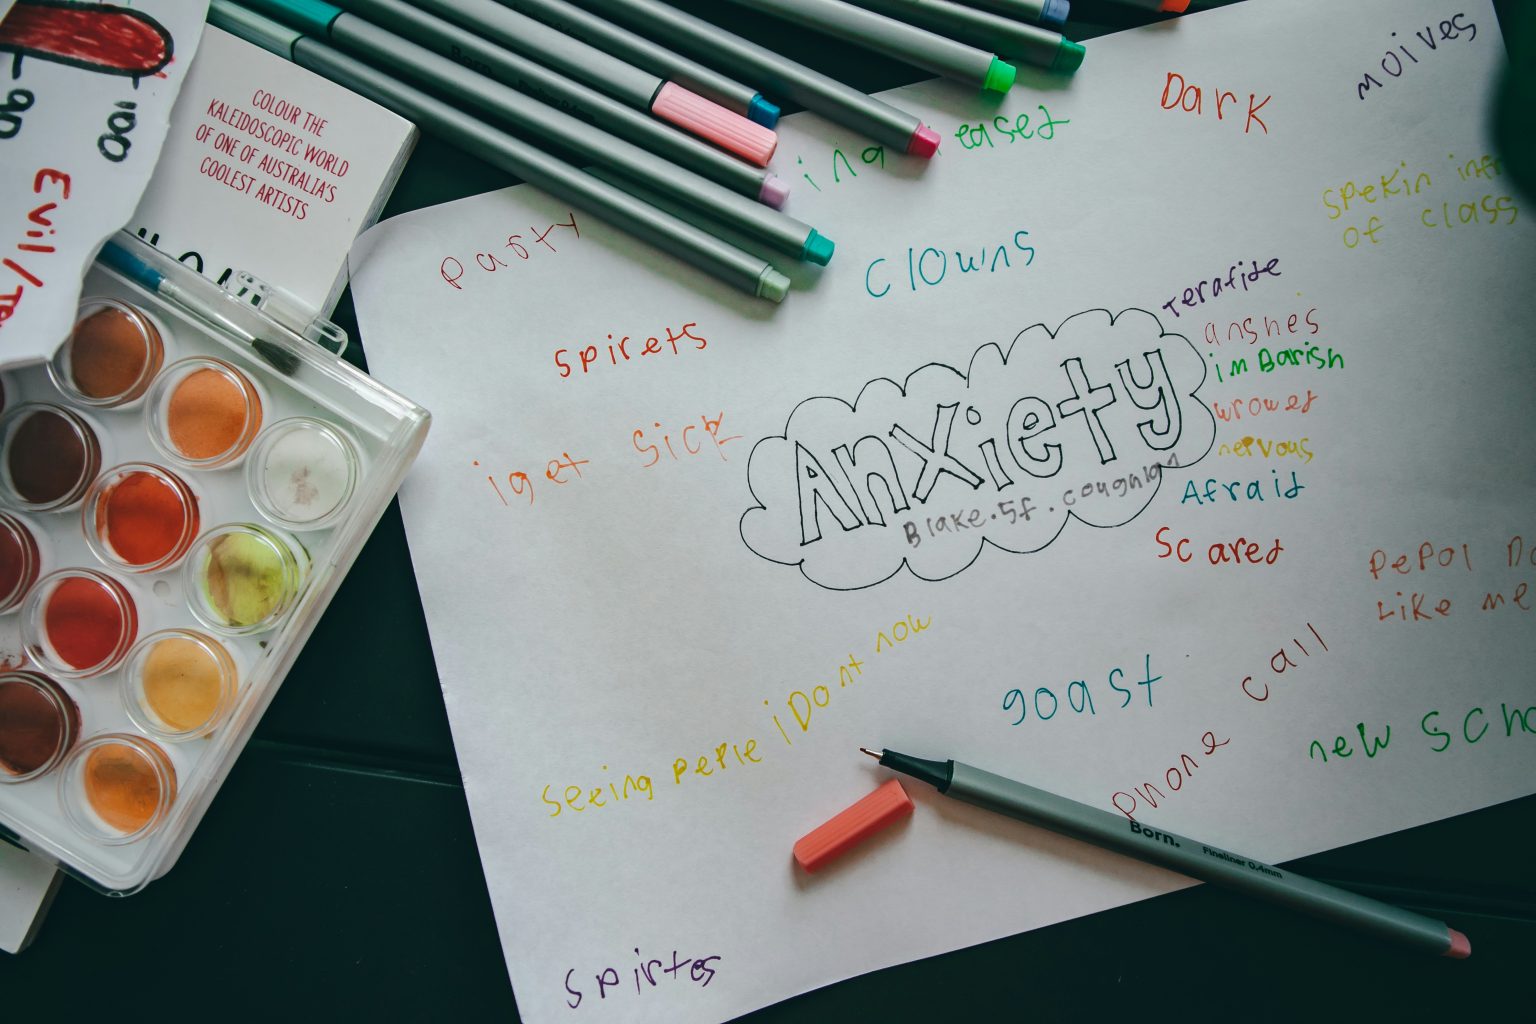 COLOUR THE
KALEIDOSCOPIC WORLD
OF ONE OF AUSTRALIA'S
COOLEST ARTISTS
100
Evil/
Born.
Dark
moives
spekin
of class
party
clowns
terafide
anshes
imBarish
spirets
wrowed
nervous
Anxiety
Blake.5f.coughlan
iget sick
Afraid
Scared
pepol
Like me
iDont now
seeing peple
goast
phone call
new
Born. Fineliner 0.4mm
spirtes